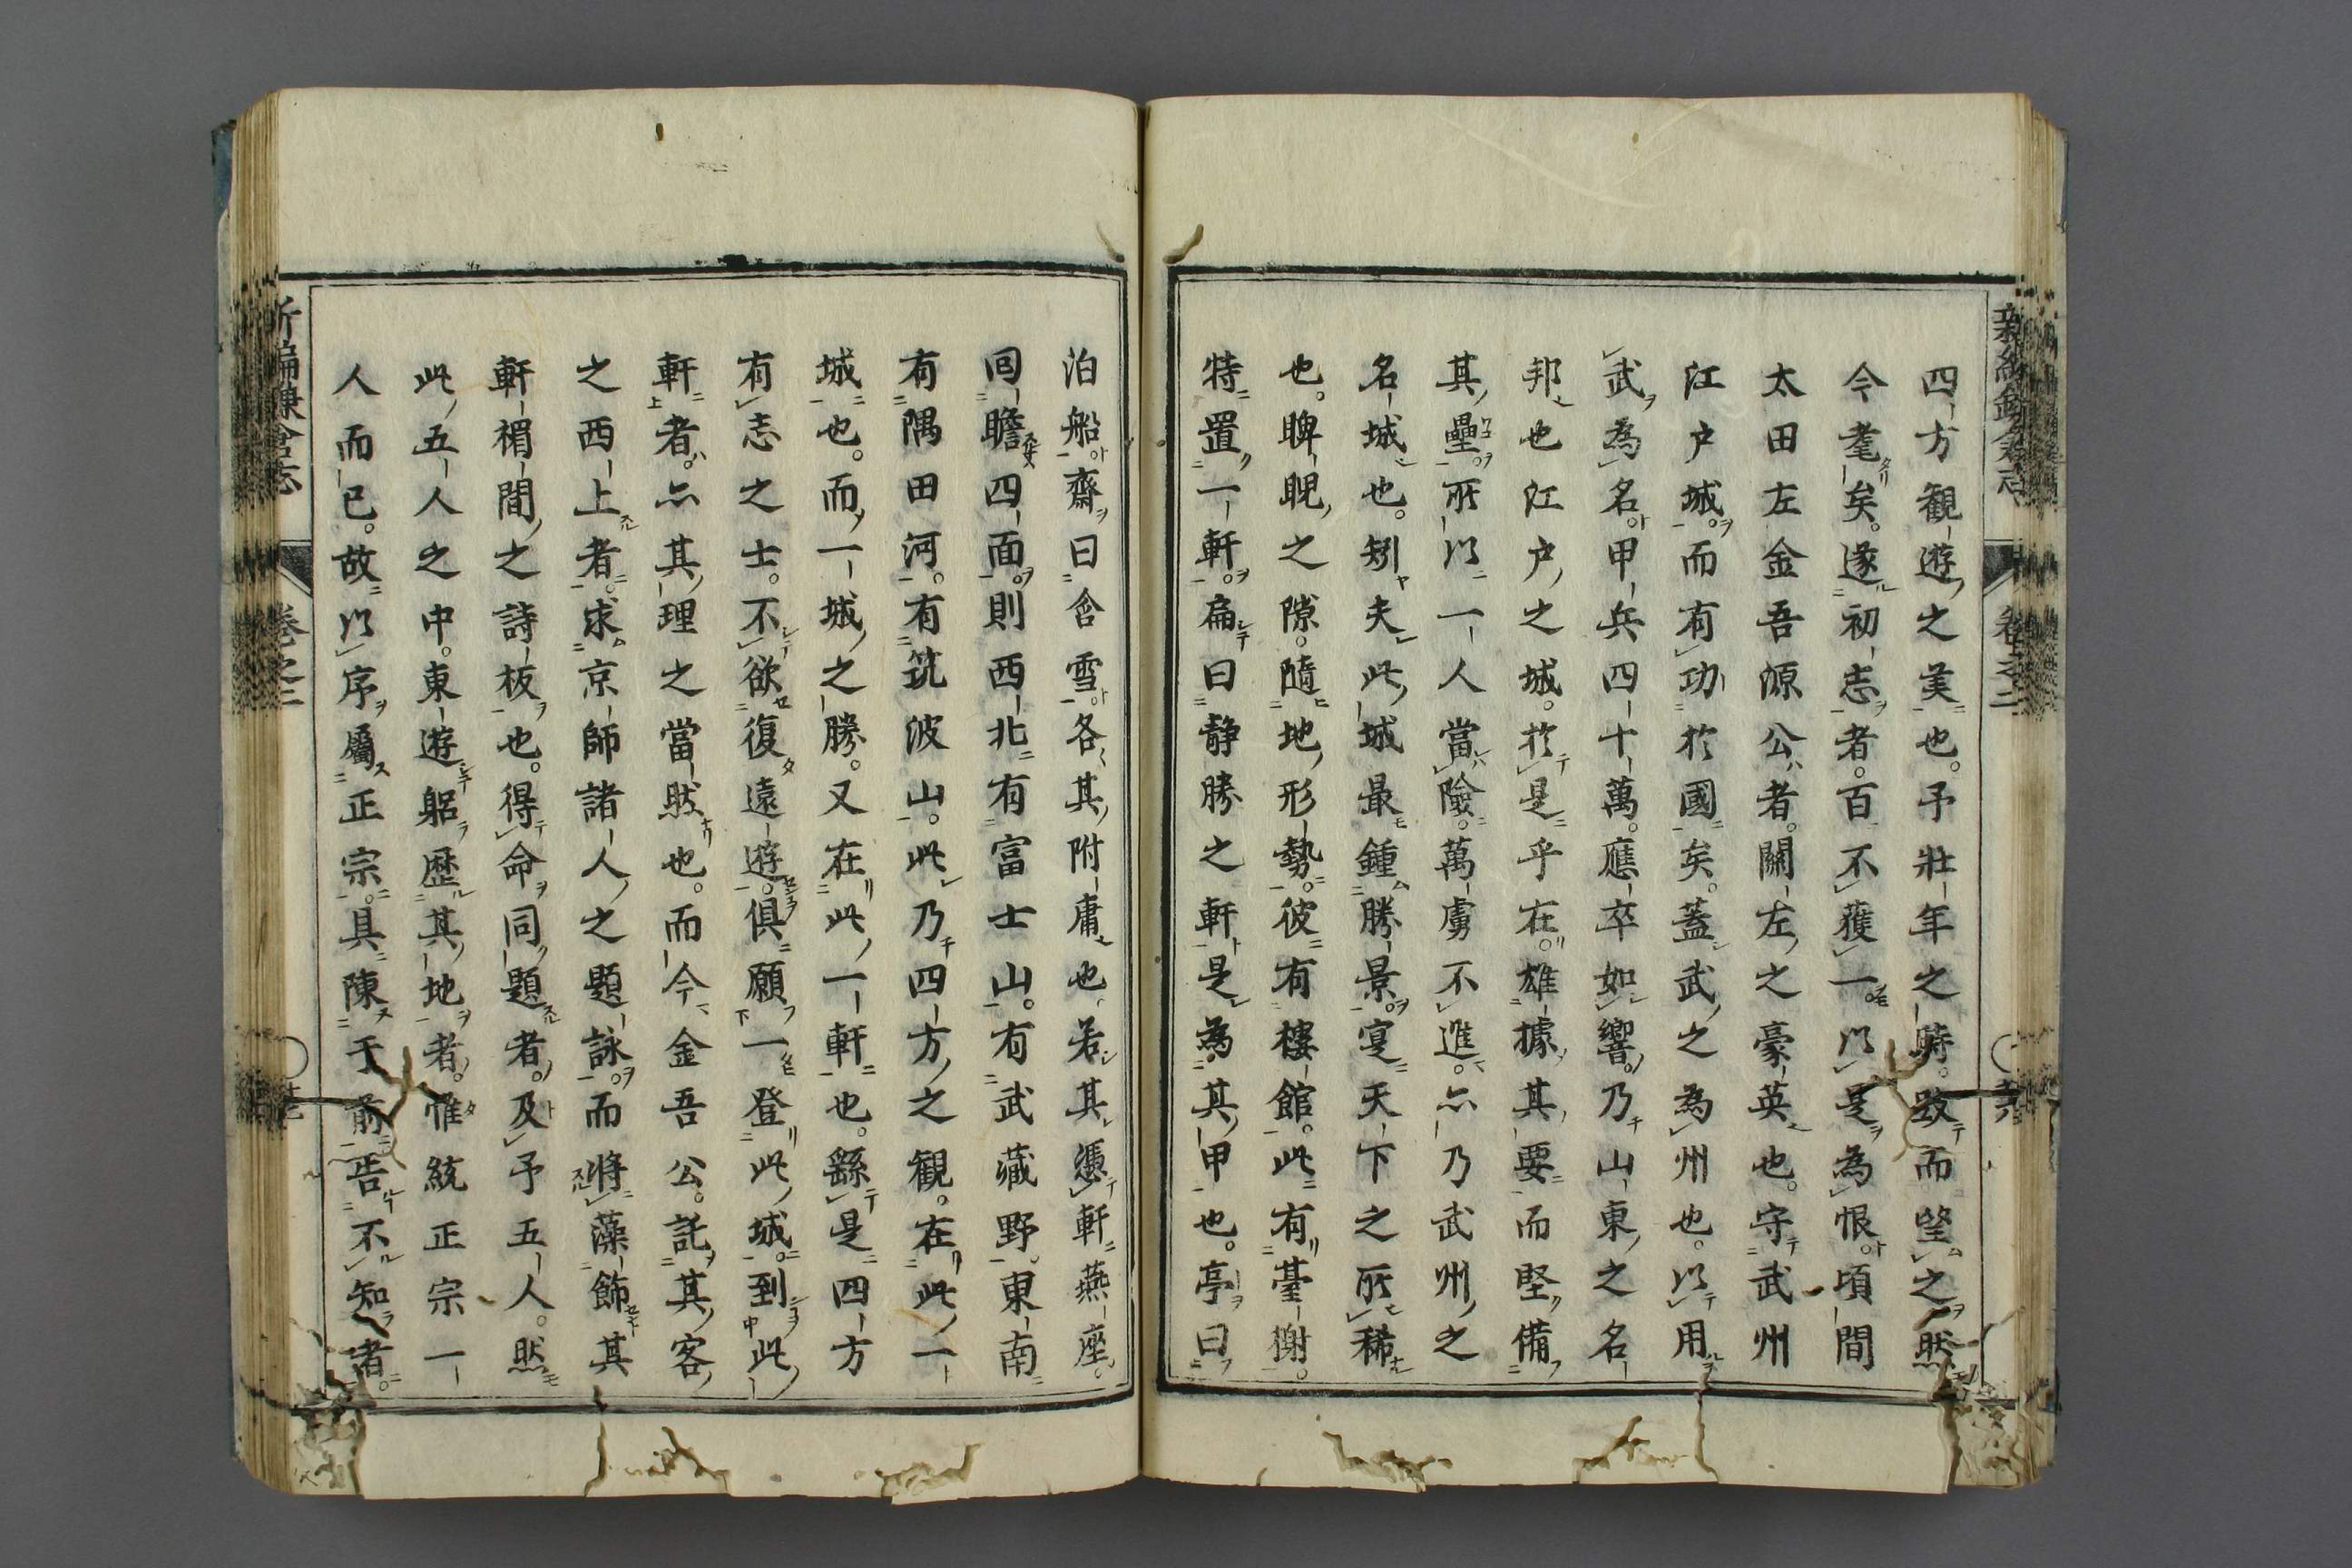 四方観遊之美也予壯年之時跂而望之然
今耄矣遂初志者百不獲一以是為恨頃間
太田左金吾源公者關左之豪英也守武州
江戸城而有功於國矣蓋武之為州也以用
武為名甲兵四十萬應卒如響乃山東之名
邦也江戸之城於是乎在雄據其要而堅備
其壘所以一人當險萬虜不進亦乃武州之
名城也矧夫此城最鍾勝景寔天下之所稀
也睥睨之隙隨地形勢彼有樓館此有臺榭
特置一軒扁曰静勝之軒是為其甲也亭曰
泊船齋曰含雪各其附庸也若其憑軒燕座
回瞻四面則西北有富士山有武藏野東南
有隅田河有筑波山此乃四方之観在此一
城也而一城之勝又在此一軒也繇是四方
有志之士不欲復遠遊俱願一登此城到此
軒者亦其理之當然也而今金吾公託其客
之西上者求京師諸人之題詠而將藻飾其
軒楣間之詩板也得命同題者及予五人然
此五人之中東遊躬歴其地者惟統正宗一
人而已故以序屬正宗具陳于前告不知者
新編鎌倉志
卷之二
新編鎌倉志
卷之二